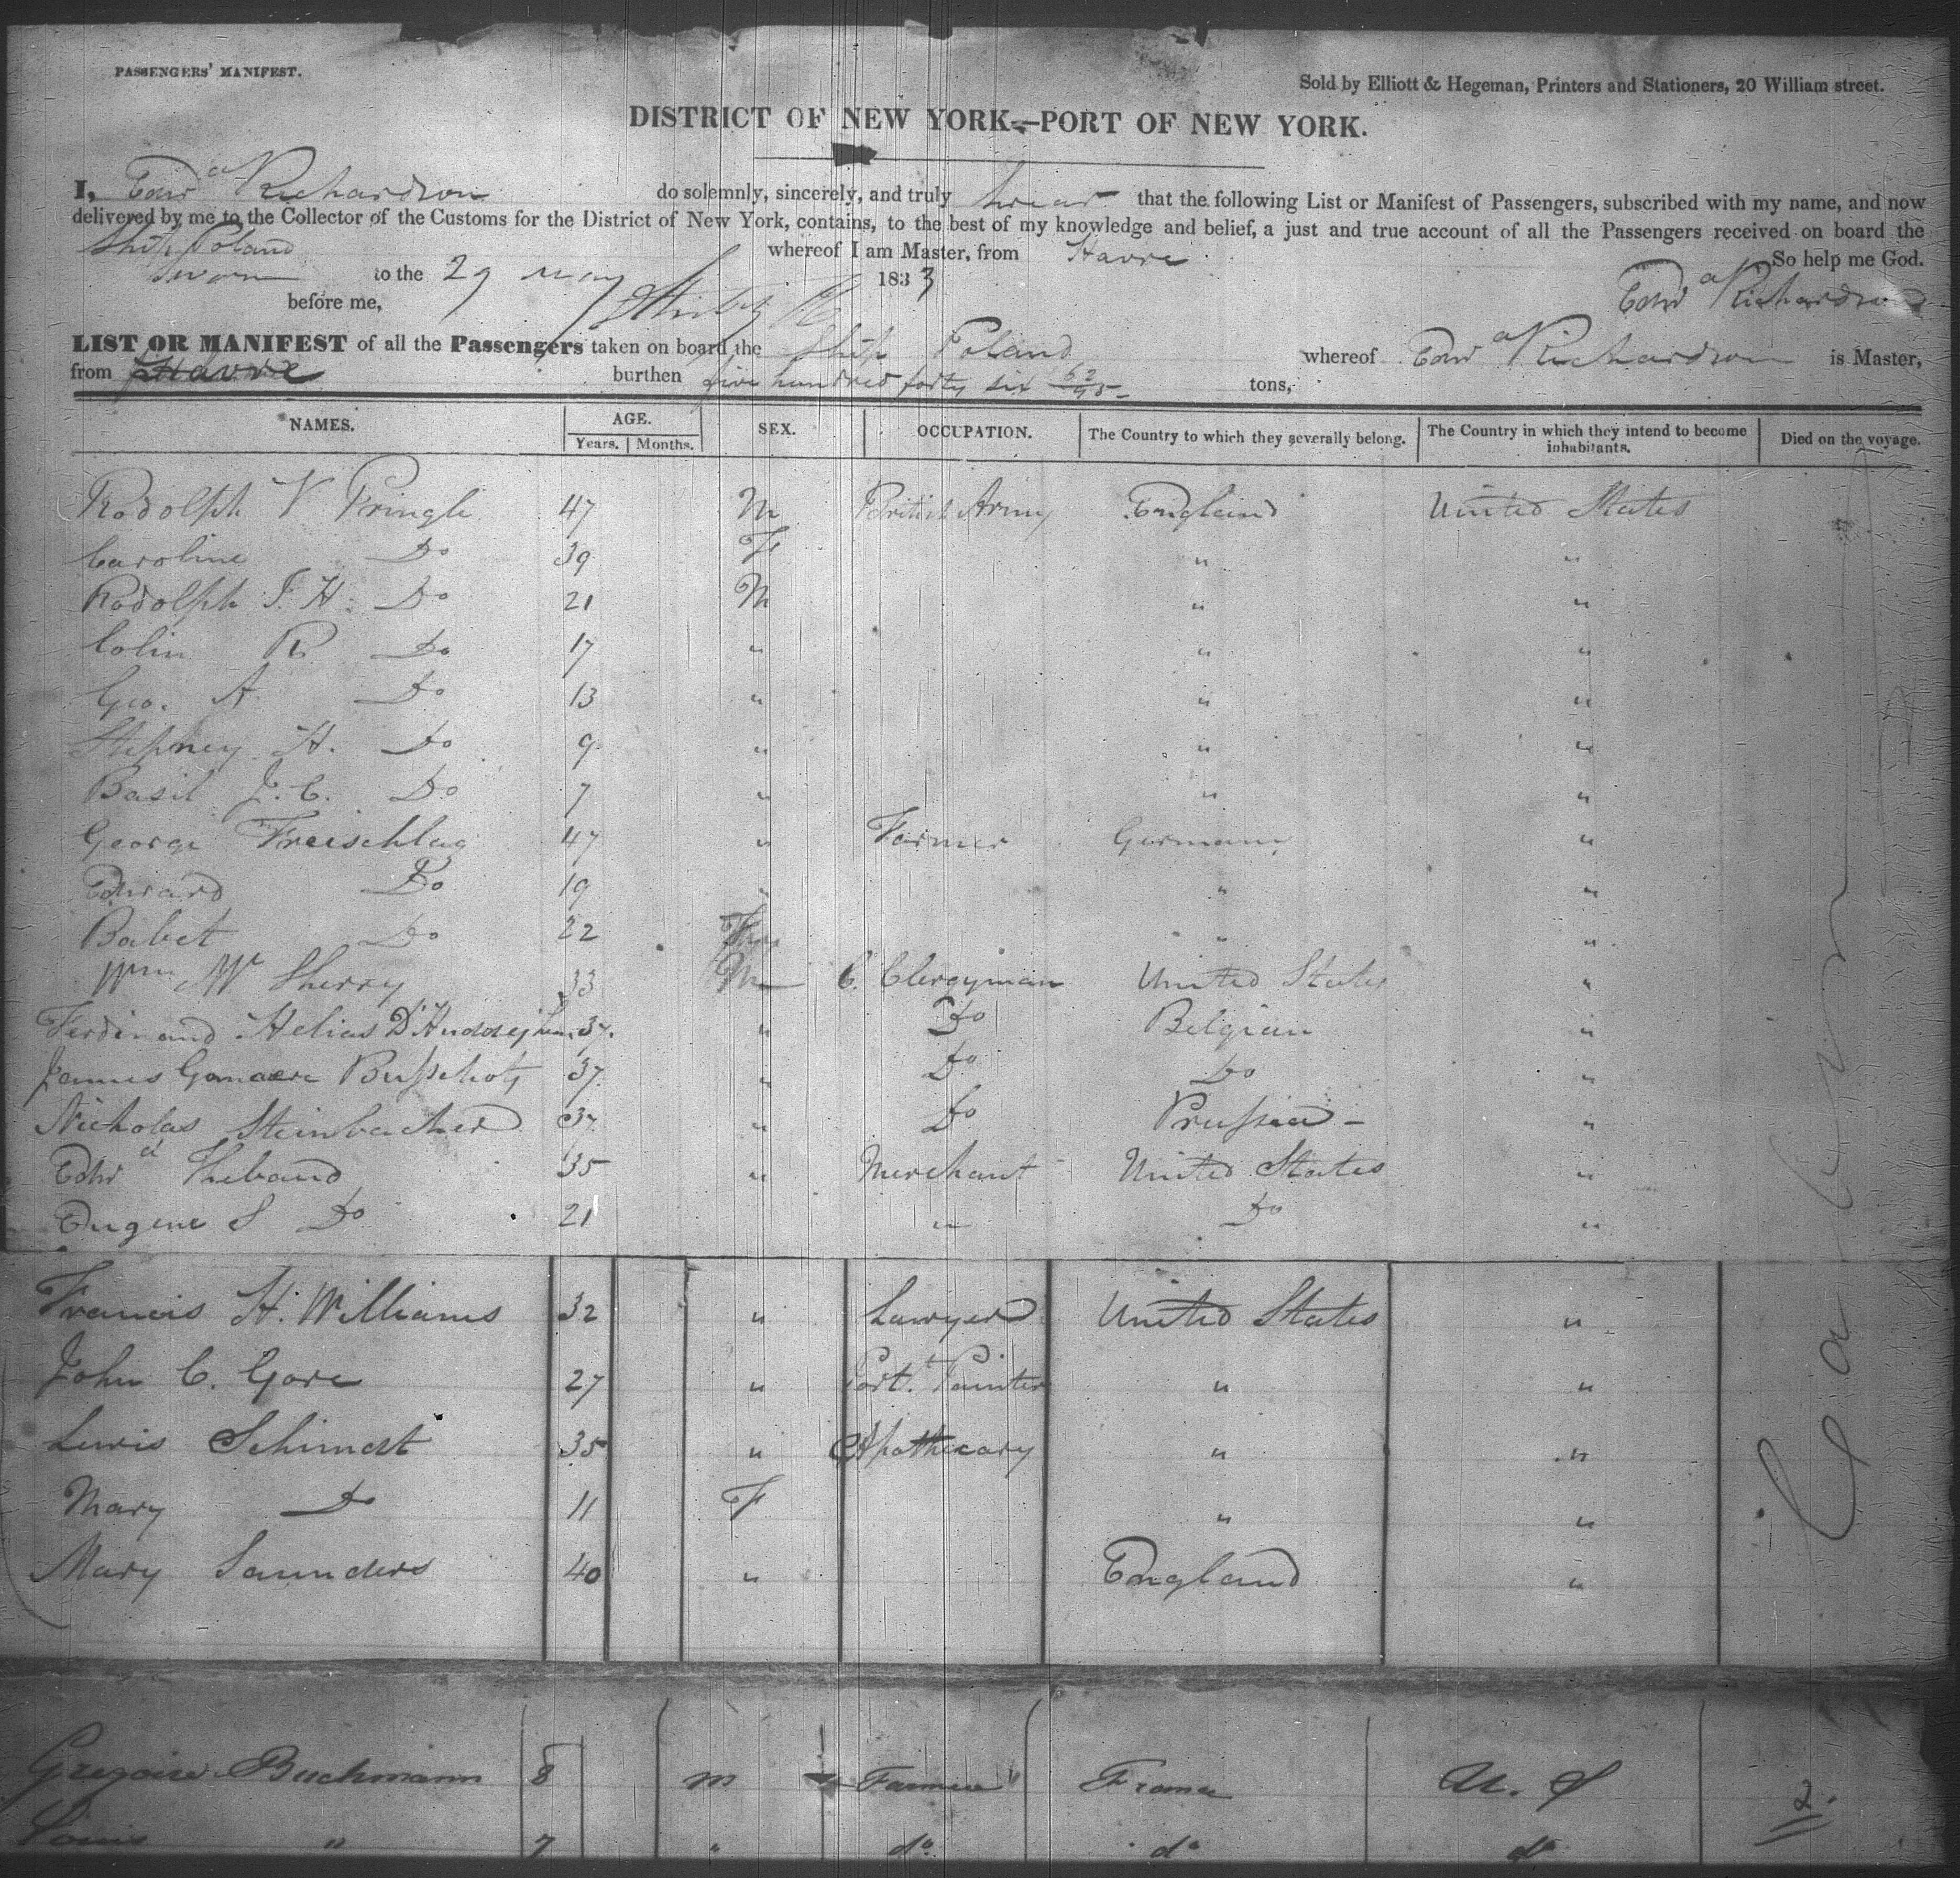 PASSENGERS' MANIFEST.
Sold by Elliott & Hegeman, Printers and Stationers, 20 William street.
DISTRICT OF NEW YORK—PORT OF NEW YORK.
I, Edwd Richardson do solemnly, sincerely, and truly swear that the following List or Manifest of Passengers, subscribed with my name, and now
delivered by me to the Collector of the Customs for the District of New York, contains, to the best of my knowledge and belief, a just and true account of all the Passengers received on board the
Ship Poland whereof I am Master, from Havre So help me God.
Sworn to the 29 May 1833 Edwd Richardson
before me,
LIST OR MANIFEST of all the Passengers taken on board the Ship Poland whereof Edwd Richardson is Master,
from Havre burthen five hundred forty six 62/95 tons,
NAMES. AGE. SEX. OCCUPATION. The Country to which they severally belong. The Country in which they intend to become inhabitants. Died on the voyage.
Years. Months.
Rodolph V Pringle 47 M British Army England United States
Caroline Do 39 F " "
Rodolph J. H. Do 21 M " "
Colin R Do 17 " " "
Geo. A Do 13 " " "
Stepney H. Do 9 " " "
Basil J. C. Do 7 " " "
George Freischlag 47 " Farmer Germany "
Edward Do 19 " " "
Babet Do 22 F " "
Wm Mc Sherry 33 M C. Clergyman United States "
Ferdinand Helias D' 37. " Do Belgian "
James Busschots 37 " Do Do "
Nicholas Steinbacher 37 " Do Prussia - "
Edwd Thebaud 35 " Merchant United States "
Eugene S Do 21 " " Do "
Francis H. Williams 32 " Lawyer United States "
John C. Gore 27 " Port. Painter " "
Lewis Schimdt 35 " Apothecary " "
Mary Do 11 F " "
Mary Saunders 40 " England "
Gregoire Buchmann 8 m Farmer France U. S
Louis " 7 " do do do
2.